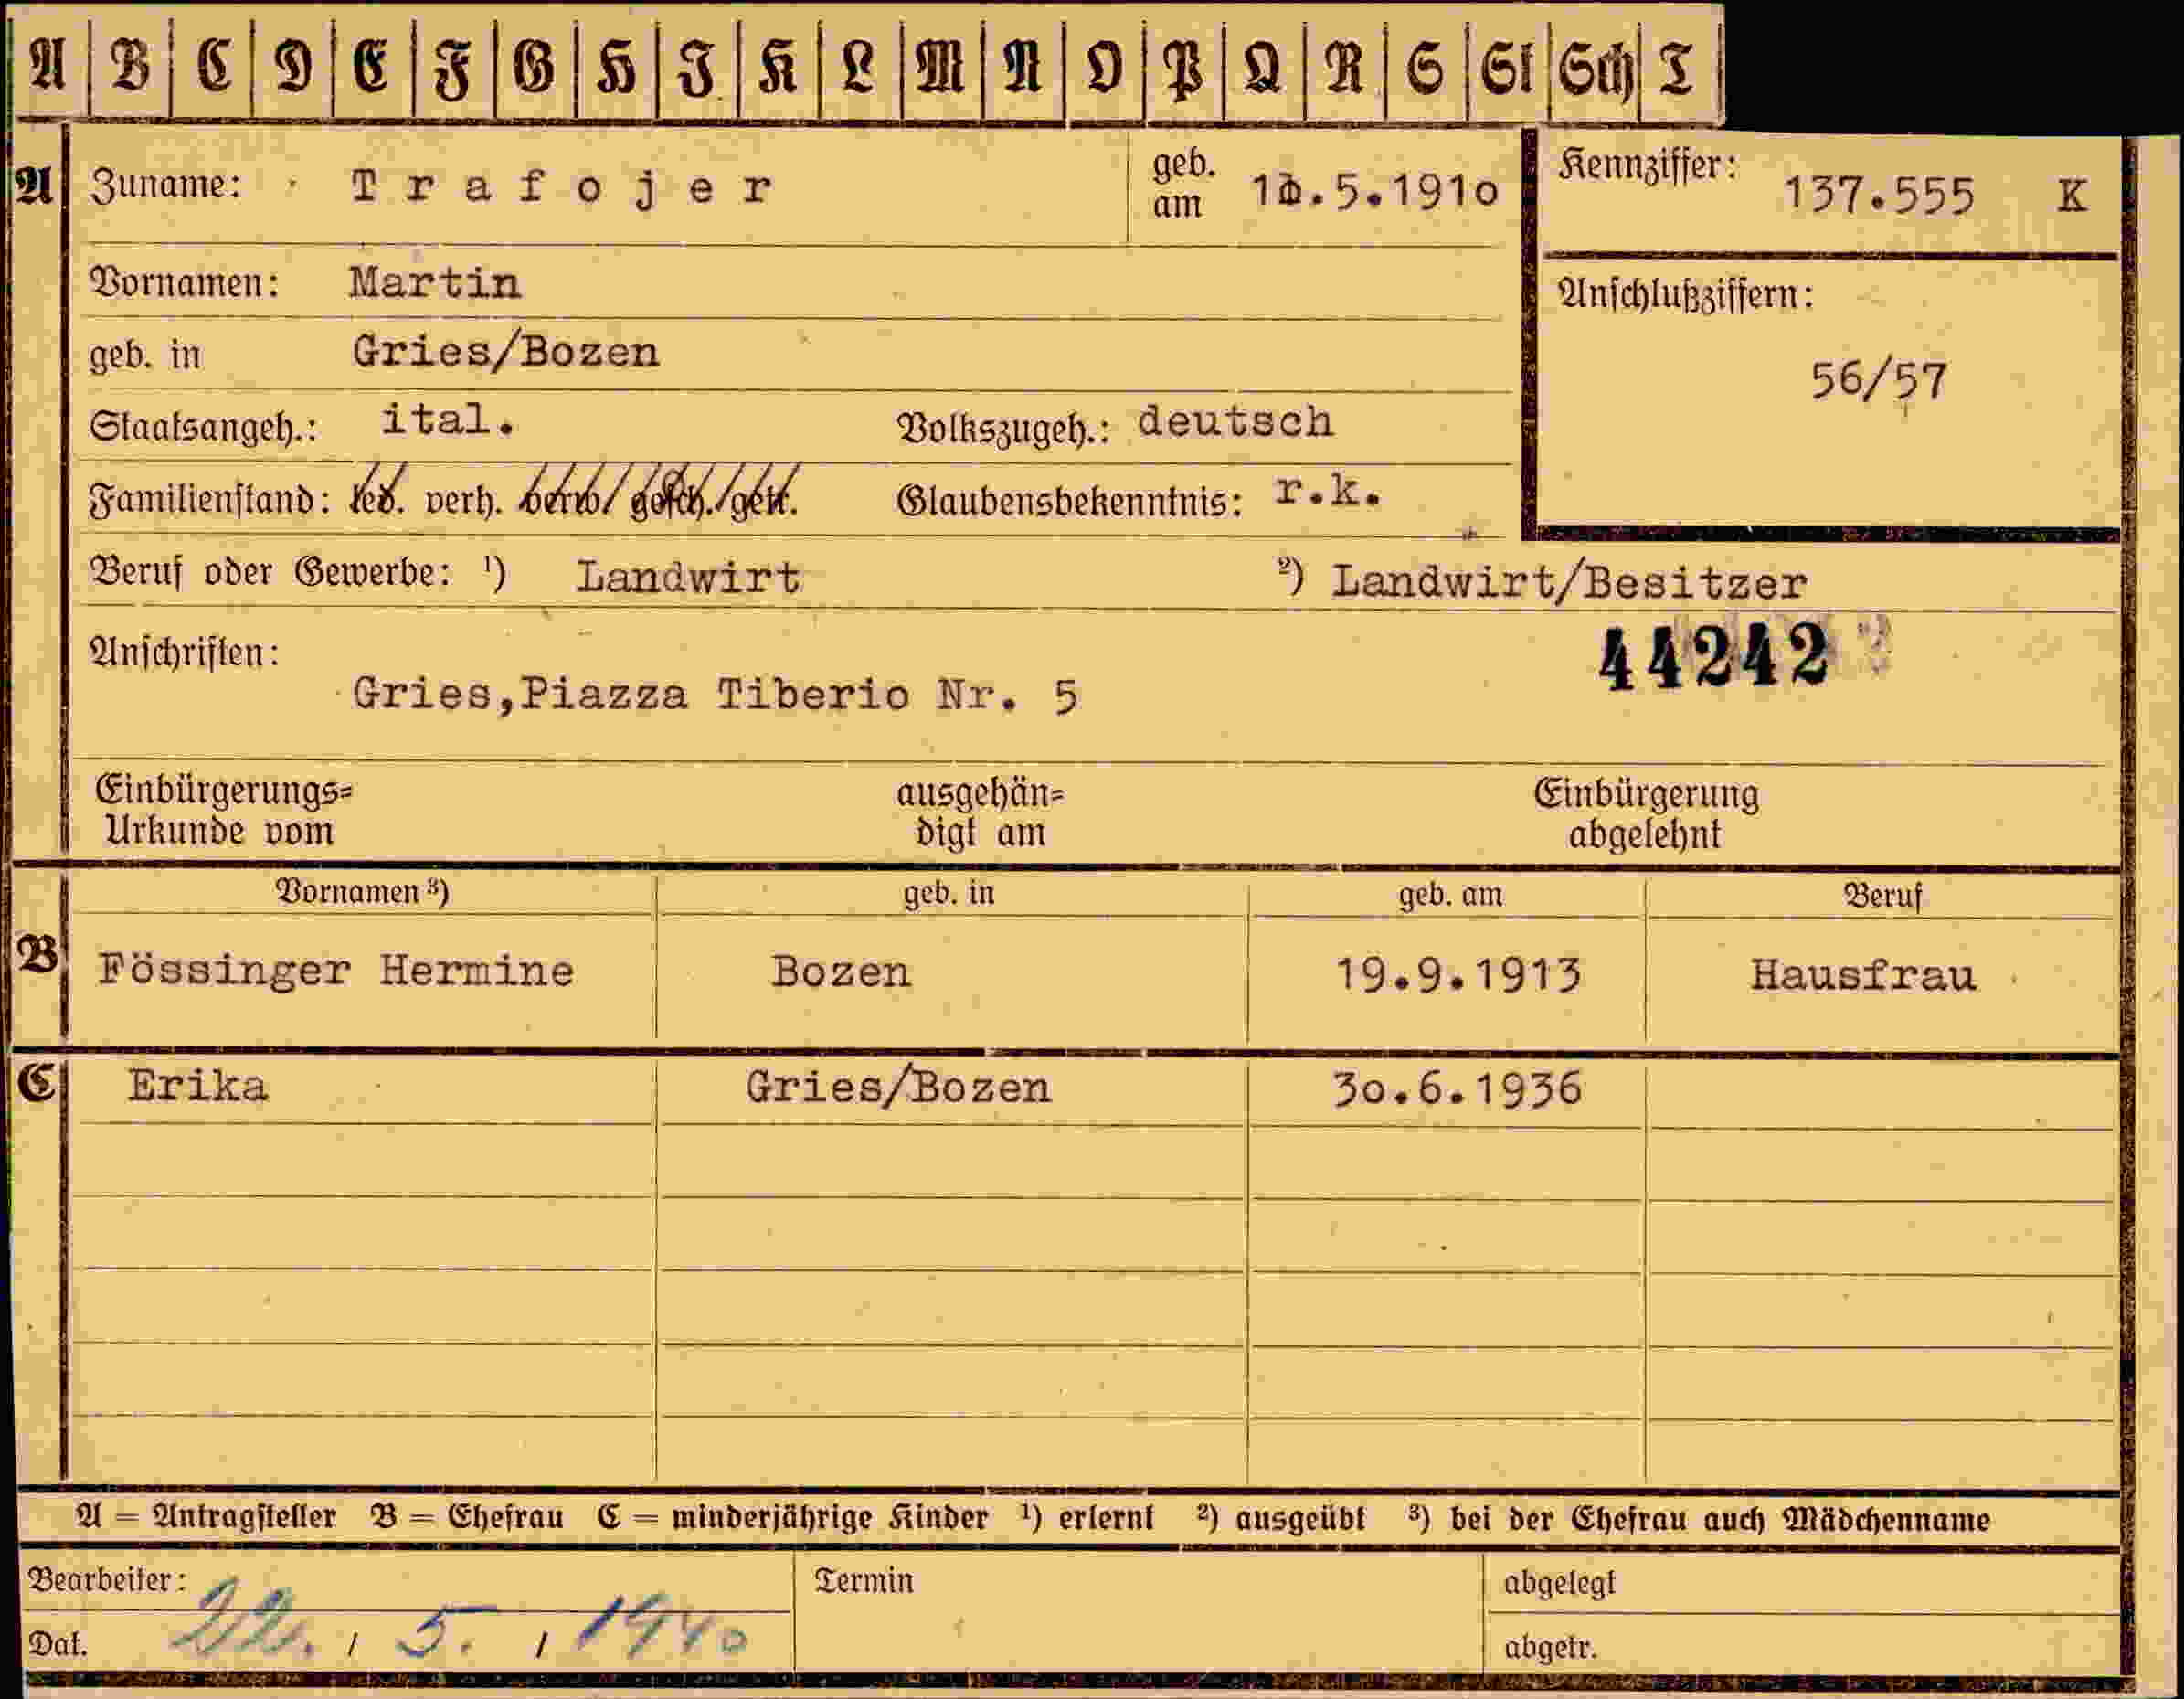 A B C D E F G H J K L M N O P Q R S St Sch T
A Zuname: Trafojer geb. am .5.1910 Kennziffer: 137.555 K
Vornamen: Martin Anschlußziffern:
geb. in Gries/Bozen 56/57
Staatsangeh.: ital. Volkszugeh.: deutsch
Familienstand: led. verh. verw./gesch./getr. Glaubensbekenntnis: r.k.
Beruf oder Gewerbe: ¹) Landwirt ²) Landwirt/Besitzer
Anschriften: 44242
Gries,Piazza Tiberio Nr. 5
Einbürgerungs= ausgehän= Einbürgerung
Urkunde vom digt am abgelehnt
Vornamen ³) geb. in geb. am Beruf
B Fössinger Hermine Bozen 19.9.1913 Hausfrau
C Erika Gries/Bozen 30.6.1936
A = Antragsteller B = Ehefrau C = minderjährige Kinder ¹) erlernt ²) ausgeübt ³) bei der Ehefrau auch Mädchenname
Bearbeiter: Termin abgelegt
Dat. 22. / 5. / 1940 abgetr.